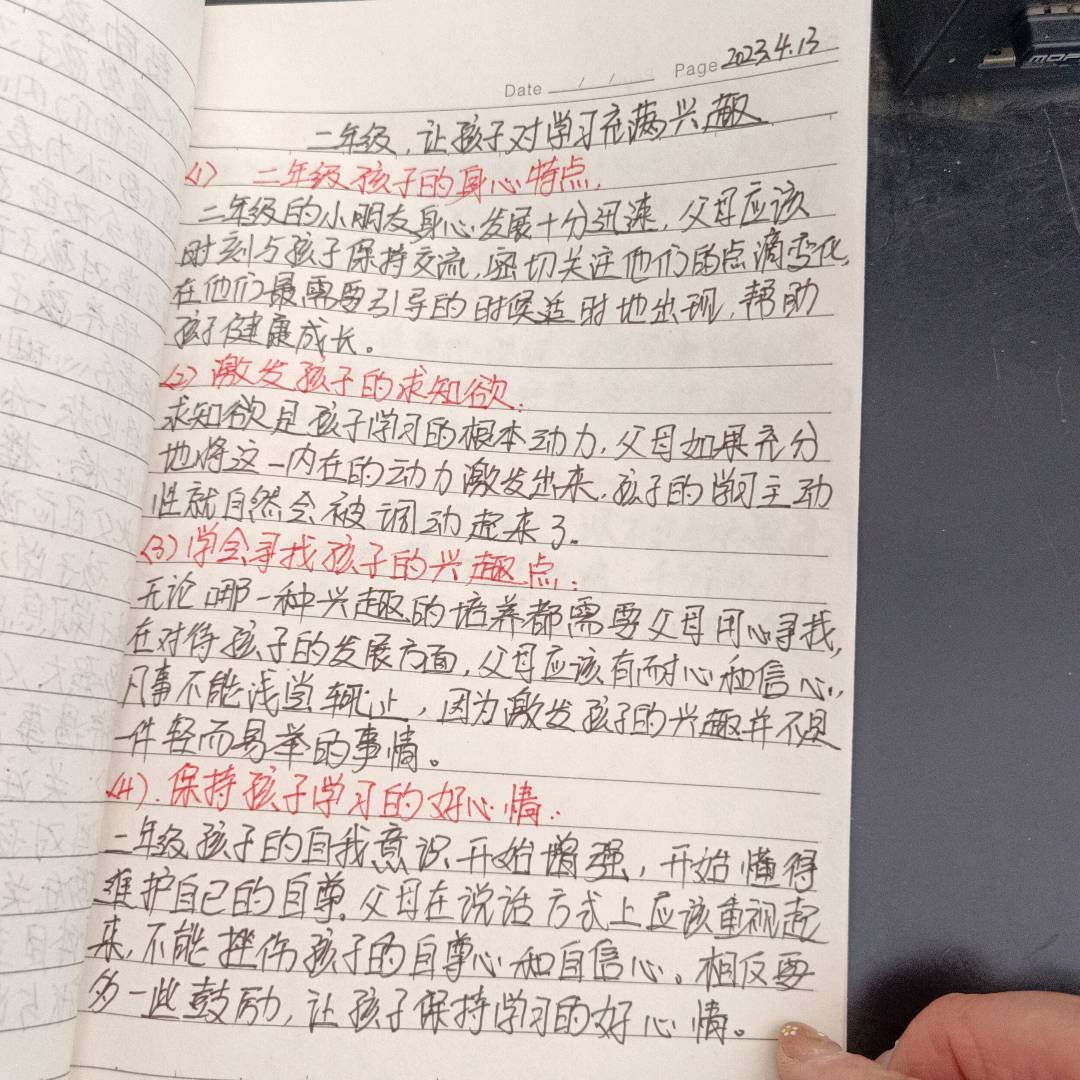 Date / / Page 2023.4.13
二年级,让孩子对学习充满兴趣
<1> 二年级孩子的身心特点.
二年级的小朋友身心发展十分迅速,父母应该
时刻与孩子保持交流,密切关注他们的点滴变化,
在他们最需要引导的时候适时地出现,帮助
孩子健康成长。
<2> 激发孩子的求知欲.
求知欲是孩子学习的根本动力,父母如果充分
地将这一内在的动力激发出来,孩子的学习主动
性就自然会被调动起来了。
<3> 学会寻找孩子的兴趣点.
无论哪一种兴趣的培养都需要父母用心寻找,
在对待孩子的发展方面,父母应该有耐心和信心,
凡事不能浅尝辄止,因为激发孩子的兴趣并不是
一件轻而易举的事情。
<4>.保持孩子学习的好心情.
二年级孩子的自我意识开始增强,开始懂得
维护自己的自尊.父母在说话方式上应该重视起
来,不能挫伤孩子的自尊心和自信心。相反要
多一些鼓励,让孩子保持学习的好心情。